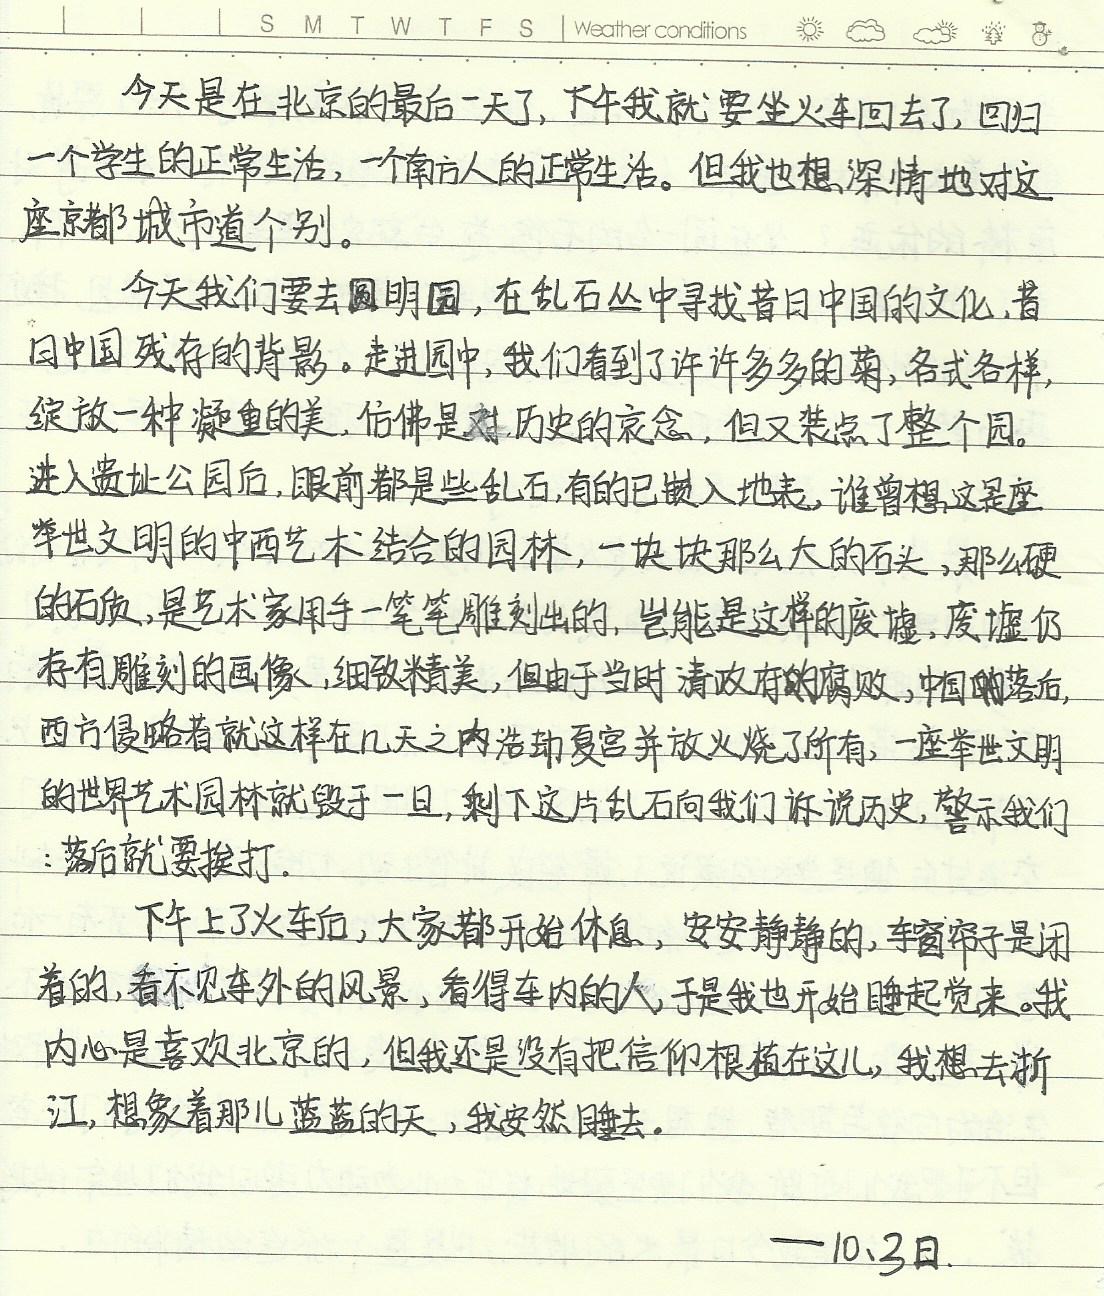 S M T W T F S Weather conditions
今天是在北京的最后一天了,下午我就要坐火车回去了,回归
一个学生的正常生活,一个南方人的正常生活。但我也想深情地对这
座京都城市道个别。
今天我们要去圆明园,在乱石丛中寻找昔日中国的文化,昔
日中国残存的背影。走进园中,我们看到了许许多多的菊,各式各样,
绽放一种凝重的美,仿佛是对历史的哀念,但又装点了整个园。
进入遗址公园后,眼前都是些乱石,有的已嵌入地表。谁曾想,这是座
举世文明的中西艺术结合的园林,一块块那么大的石头,那么硬
的石质,是艺术家用手一笔笔雕刻出的,岂能是这样的废墟,废墟仍
存有雕刻的画像,细致精美,但由于当时清政府的腐败,中国的落后,
西方侵略者就这样在几天之内浩劫夏宫并放火烧了所有,一座举世文明
的世界艺术园林就毁于一旦,剩下这片乱石向我们诉说历史,警示我们
:落后就要挨打.
下午上了火车后,大家都开始休息,安安静静的,车窗帘子是闭
着的,看不见车外的风景,看得车内的人,于是我也开始睡起觉来。我
内心是喜欢北京的,但我还是没有把信仰根植在这儿,我想去浙
江,想象着那儿蓝蓝的天,我安然睡去.
—10、3日.